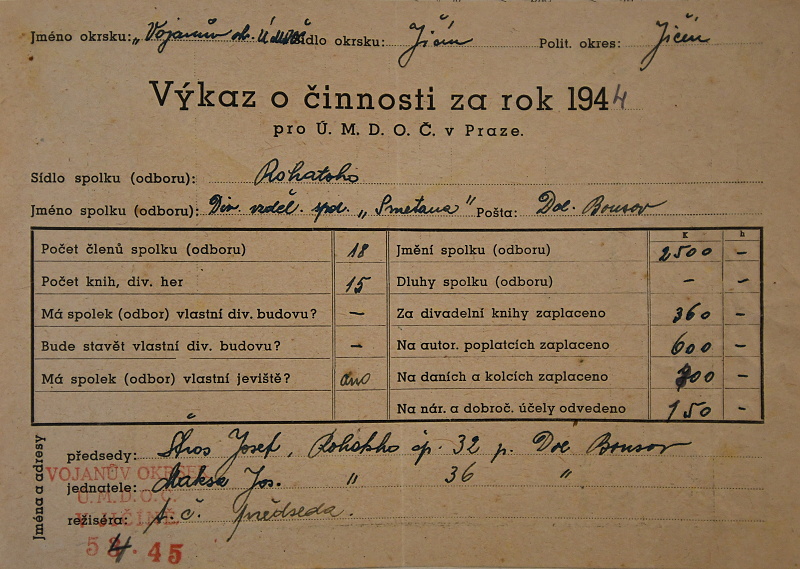 Jméno okrsku: „Vojanův ok. Sídlo okrsku: Jičín Polit. okres: Jičín
Výkaz o činnosti za rok 1944
pro Ú. M. D. O. Č. v Praze.
Sídlo spolku (odboru): Rohatsko
Jméno spolku (odboru): Div. vzděl. spol. „Smetana" Pošta: Dol. Bousov
K h
Počet členů spolku (odboru) 18 Jmění spolku (odboru) 2500 –
Počet knih, div. her 15 Dluhy spolku (odboru) – –
Má spolek (odbor) vlastní div. budovu? – Za divadelní knihy zaplaceno 360 –
Bude stavět vlastní div. budovu? – Na autor. poplatcích zaplaceno 600 –
Má spolek (odbor) vlastní jeviště? ano Na daních a kolcích zaplaceno 700 –
Na nár. a dobroč. účely odvedeno 150 –
Jména a adresy
předsedy: Stros Josef, Rohatsko čp. 32 p. Dol Bousov
jednatele: Maksa Jos. " 36 "
režiséra: t. č. předseda.
VOJANŮV OKRSEK
Ú.M.D.O.Č.
V JIČÍNĚ
45